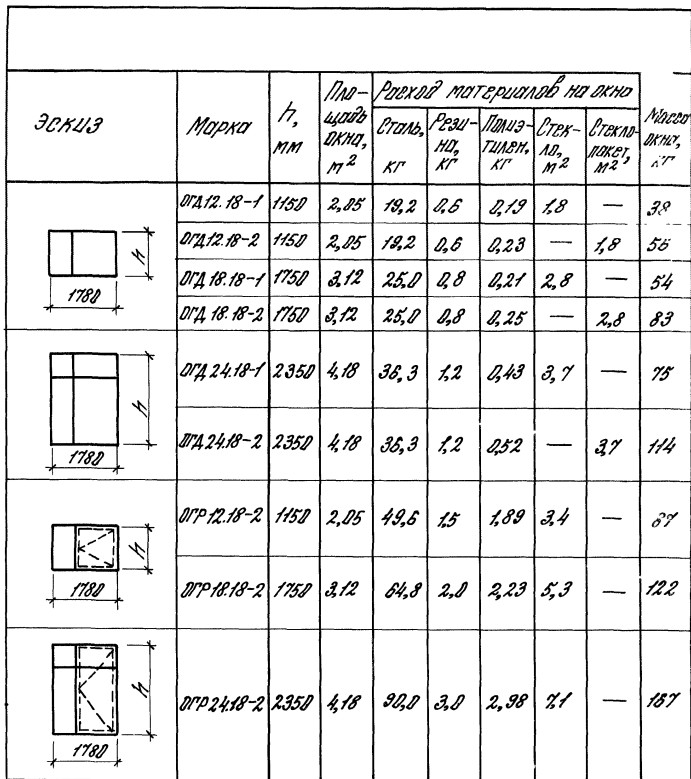 Эскиз Марка h, мм Площадь окна, м² Расход материалов на окна Масса окна, кг
Сталь, кг Резина, кг Полиэтилен, кг Стекло, м² Стеклопакет, м²
ОГД 12.18-1 1150 2,05 19,2 0,6 0,19 1,8 — 38
ОГД 12.18-2 1150 2,05 19,2 0,6 0,23 — 1,8 56
ОГД 18.18-1 1750 3,12 25,0 0,8 0,21 2,8 — 54
ОГД 18.18-2 1750 3,12 25,0 0,8 0,25 — 2,8 83
h
1780
ОГД 24.18-1 2350 4,18 36,3 1,2 0,43 3,7 — 75
ОГД 24.18-2 2350 4,18 36,3 1,2 0,52 — 3,7 114
h
1780
ОГР 12.18-2 1150 2,05 49,6 1,5 1,89 3,4 — 87
ОГР 18.18-2 1750 3,12 64,8 2,0 2,23 5,3 — 122
h
1780
ОГР 24.18-2 2350 4,18 90,0 3,0 2,98 7,1 — 167
h
1780